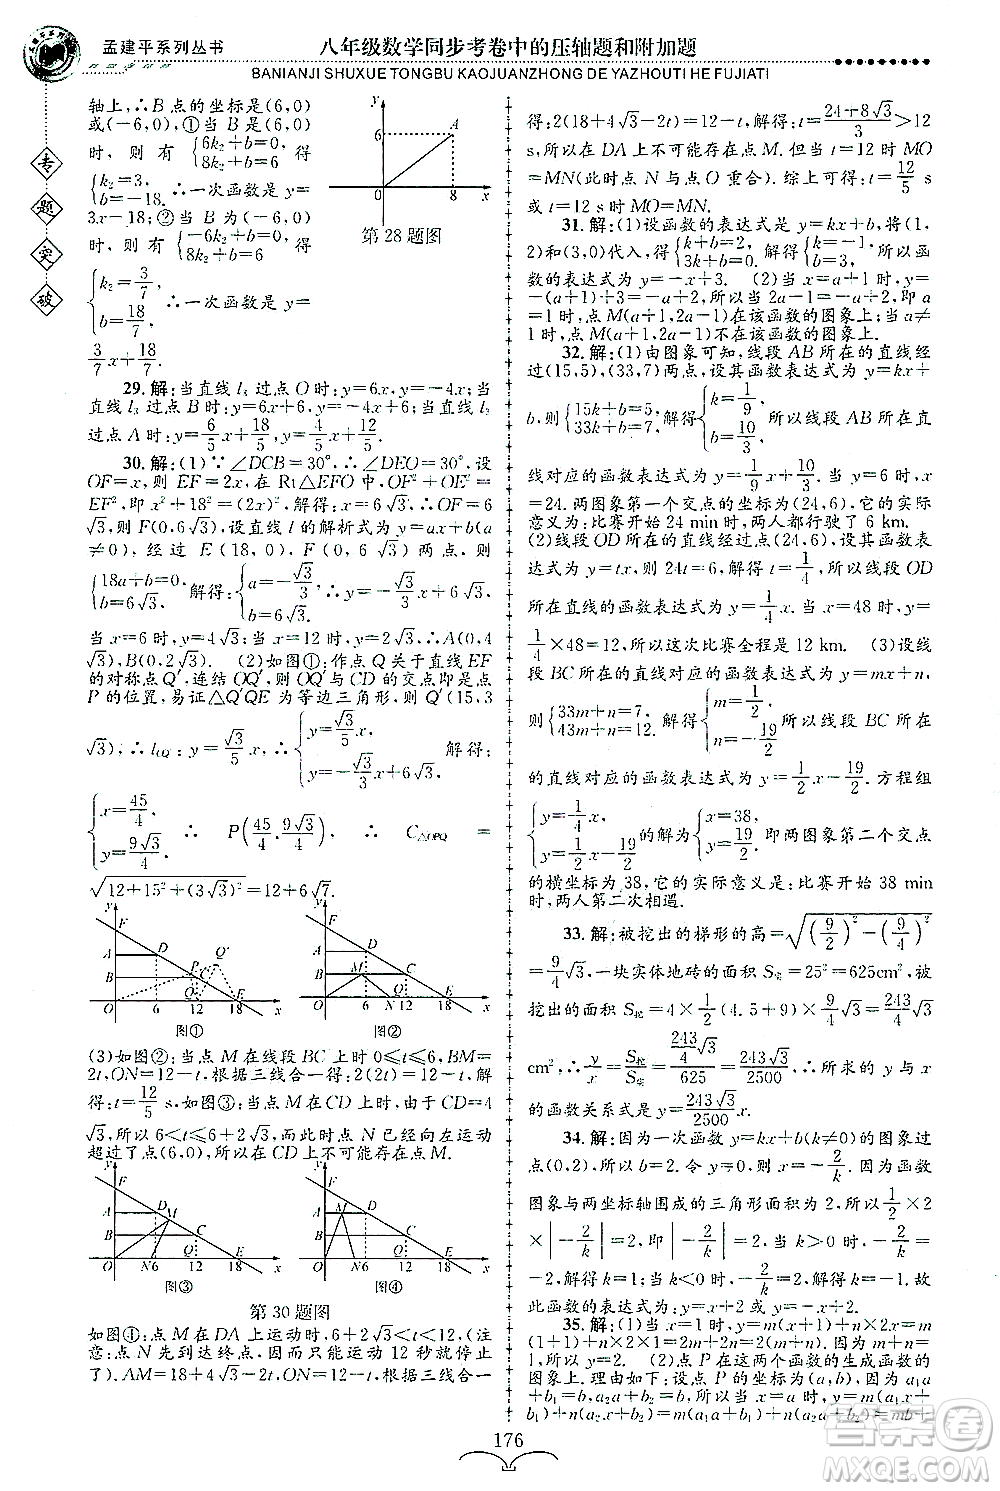 孟建平系列丛书
八年级数学同步考卷中的压轴题和附加题
BANIANJI SHUXUE TONGBU KAOJUANZHONG DE YAZHOUTI HE FUJIATI
专题突破
轴上,∴B点的坐标是(6,0)
或(-6,0),①当B是(6,0)
时,则有{6k₂+b=0 8k₂+b=6 得
{k₂=3, b=-18. ∴一次函数是y=
3x-18;②当B为(-6,0)
时,则有{-6k₂+b=0 8k₂+b=6 得
{k₂=3/7 b=18/7 ∴一次函数是y=
3/7x+18/7.
y
6
A
0
8
x
第28题图
29.解:当直线l₃过点O时:y=6x,y=-4x;当
直线l₃过点B时:y=6x+6,y=-4x+4;当直线l₂
过点A时:y=6/5x+18/5,y=-4/5x+18/5.
30.解:(1)∵∠DCB=30°,∴∠DEO=30°,设
OF=x,则EF=2x,在Rt△EFO中,OF²+OE²=
EF²,即x²+18²=(2x)²,解得:x=6√3,∴OF=6
√3,则F(0,6√3),设直线l的解析式为y=ax+b(a
≠0),经过E(18,0),F(0,6√3)两点,则
{18a+b=0, b=6√3, 解得:{a=-√3/3, b=6√3, ∴y=-√3/3x+6√3,
当x=6时,y=4√3;当x=12时,y=2√3,∴A(0,4
√3),B(0,2√3). (2)如图①:作点Q关于直线EF
的对称点Q′,连结OQ′,则OQ′与CD的交点即是点
P的位置,易证△Q′QE为等边三角形,则Q′(15,3
√3),∴l_OQ′:y=√3/5x,∴{y=√3/5x, y=-√3/3x+6√3, 解得:
{x=45/4 y=9√3/4 ∴P(45/4,9√3/4),∴C△OPQ=
√12+15²+(3√3)²=12+6√7.
y F A D B C P Q′ Q E O 6 12 18 x
图①
y F A D B M C O 6 N 12 18 E x
图②
(3)如图②:当点M在线段BC上时0≤t≤6,BM=
2t,ON=12-t,根据三线合一得:2(2t)=12-t,解
得:t=12/5 s.如图③:当点M在CD上时,由于CD=4
√3,所以6<t≤6+2√3,此时点N已经向左运动
超过了点(6,0),所以在CD上不可能存在点M.
F A D M B C Q E O N6 12 18 x
图③
F A M D B C Q E O N6 12 18 x
图④
第30题图
如图④:点M在DA上运动时,6+2√3<t≤12,(注
意:点N先到达终点,因此只能运动12秒就停止
了).AM=18+4√3-2t,ON=12-t,根据三线合一
得:2(18+4√3-2t)=12-t,解得:t=(24+8√3)/3>12
s,所以在DA上不可能存在点M.但当t=12时MO
=MN(此时点N与点O重合).综上可得:t=12/5 s
或t=12 s时MO=MN.
31.解:(1)设函数的表达式是y=kx+b,将(1,
2)和(3,0)代入,得{k+b=2 3k+b=0, 解得{k=-1, b=3. 所以函
数的表达式为y=-x+3. (2)当x=a+1时,y=
-(a+1)+3=2-a,所以当2a-1=-a+2,即a
=1时,点M(a+1,2a-1)在该函数的图象上;当a≠
1时,点M(a+1,2a-1)不在该函数的图象上.
32.解:(1)由图象可知,线段AB所在的直线经
过(15,5),(33,7)两点,设其函数表达式为y=kx+
b,则{15k+b=5, 33k+b=7, 解得{k=1/9, b=10/3. 所以线段AB所在直
线对应的函数表达式为y=1/9x+10/3,当y=6时,x
=24.两图象第一个交点的坐标为(24,6),它的实际
意义为:比赛开始24 min时,两人都行驶了6 km.
(2)线段OD所在的直线经过点(24,6),设其函数表达
式为y=tx,则24t=6,解得t=1/4,所以线段OD
所在直线的函数表达式为y=1/4x,当x=48时,y=
1/4×48=12,所以这次比赛全程是12 km. (3)设线
段BC所在的直线对应的函数表达式为y=mx+n,
则{33m+n=7, 43m+n=12. 解得{m=1/2, n=-19/2. 所以线段BC所在
的直线对应的函数表达式为y=1/2x-19/2.方程组
{y=1/4x, y=1/2x-19/2 的解为{x=38, y=19/2. 即两图象第二个交点
的横坐标为38,它的实际意义是:比赛开始38 min
时,两人第二次相遇.
33.解:被挖出的梯形的高=√(9/2)²-(9/4)²
=9/4√3,一块实体地砖的面积S实=25²=625cm²,被
挖出的面积S挖=4×1/2(4.5+9)×9/4√3=243/4√3
cm²,∴y/x=S挖/S实=(243/4√3)/625=243√3/2500,∴所求的y与x
的函数关系式是y=243√3/2500x.
34.解:因为一次函数y=kx+b(k≠0)的图象过
点(0,2),所以b=2.令y=0,则x=-2/k,因为函数
图象与两坐标轴围成的三角形面积为2,所以1/2×2
×|-2/k|=2,即|-2/k|=2,当k>0时,2/k=2,k=
1;当k<0时,-2/k=2,解得k=-1,所以
此函数的表达式为y=x+2或y=-x+2.
35.解:(1)当x=1时,y=m(x+1)+n×2x=m
(1+1)+n×2×1=2m+2n=2(m+n),因为m+n=
1,所以y=2. (2)点P在这两个函数的生成函数的
图象上.理由如下:设点P的坐标为(a,b),因为a₁a
+b₁=b,a₂a+b₂=b,所以当x=a时,y=m(a₁x+
b₁)+n(a₂x+b₂)=m(a₁a+b₁)+n(a₂a+b₂)=mb+
176
答案圈
MXQE.COM